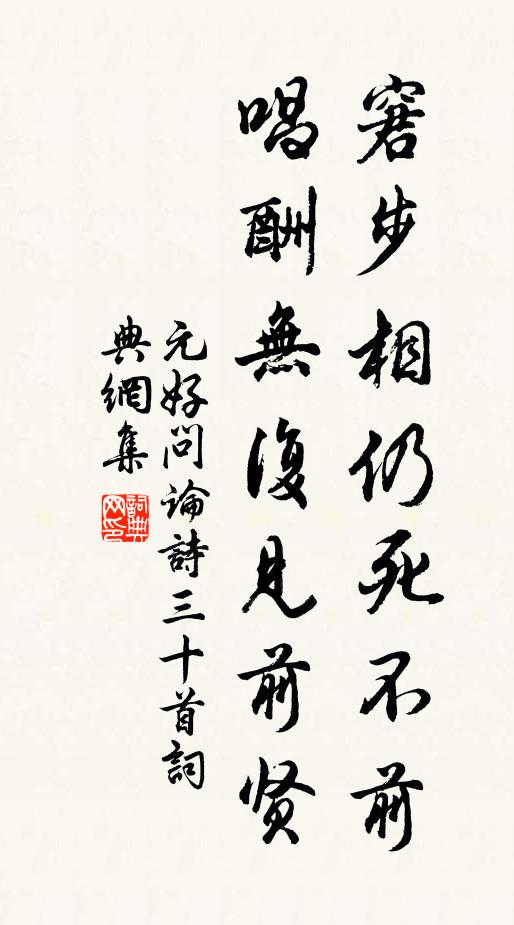 窘步相仍死不前
唱酬無復見前贤
元好问論詩三十首詞
典網集
詞典网印